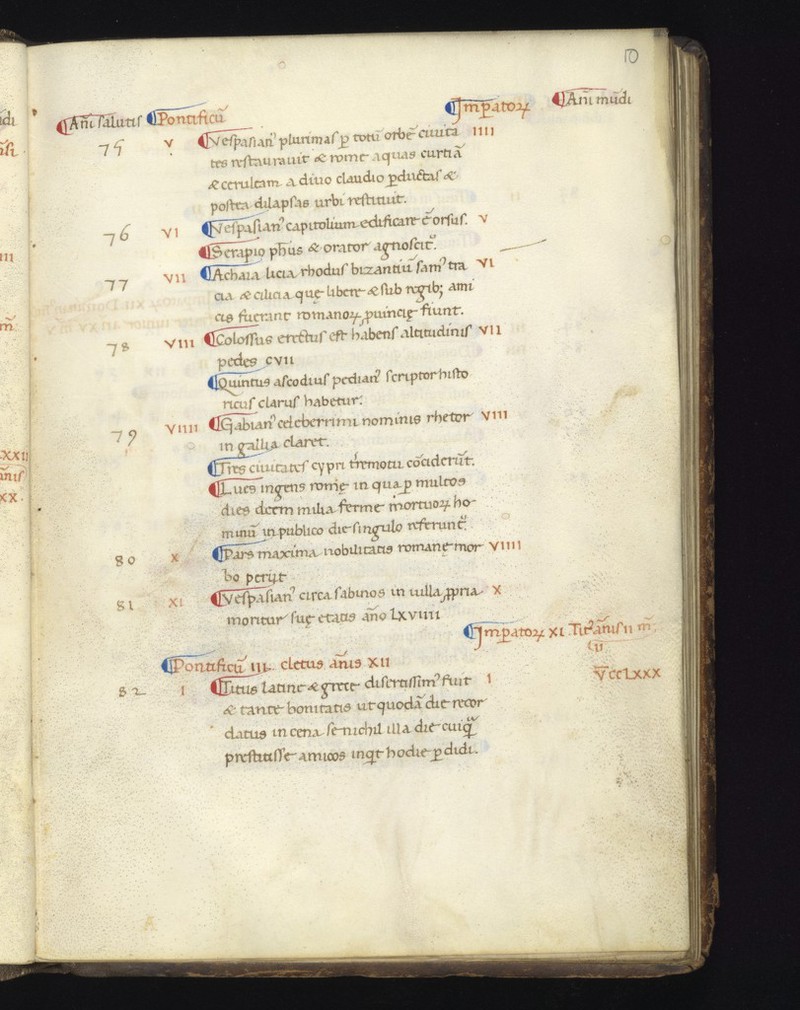 10
Añi salutis Pontificū Imperatoꝝ Añi mūdi
75 V Vespasian᷒ plurimas ꝑ totū orbē ciuita IIII
tes restaurauit & rome aquas curtiā
& ceruleam a diuo claudio ꝑductas &
postea dilapsas urbi restituit.
76 VI Vespasian᷒ capitolium edificare ē orsus. V
Serapio ph̄us & orator agnoscit᷒.
77 VII Achaia licia rhodus bizantiū sam᷒ tra VI
cia & cilicia quę libere & sub regib; ami
cis fuerant romanoꝝ ꝓuincię fiunt.
78 VIII Colossus erectus est habens altitudinis VII
pedes CVII
Quintus ascodius pedian᷒ scriptor histo
ricus clarus habetur:
79 VIIII Gabian᷒ celeberrimi nominis rhetor VIII
in gallia claret.
Tres ciuitates cypri t̄remotu cōciderūt.
Lues ingens romę in qua ꝑ multos
dies decem milia ferme mortuoꝝ ho
minū in publico die singulo referunt᷒.
80 X Pars maxima nobilitatis romanę mor VIIII
bo perijt
81 XI Vespasian᷒ circa sabinos in uilla ꝓpria X
moritur suę etatis año LXVIIII
Imperatoꝝ XI Tit᷒ añis II m̄.
II
Pontificū III. cletus añis XII
V̄CCLXXX
82 I Titus latine & grece disertissim᷒ fuit I
& tante bonitatis ut quodā die recor
datus in cena se nichil illa die cuiq̄
prestitisse amicos inq̇t hodie ꝑdidi.